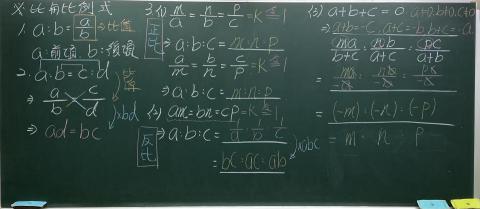 ※比與比例式
1. a:b = a/b ⇒比值
a:前項, b:後項
2. a:b = c:d
⇒ a/b = c/d
×bd
⇒ ad = bc
3. (1) m/a = n/b = p/c = k
⇒ a:b:c = m:n:p
正比
a/m = b/n = c/p = k
⇒ a:b:c = m:n:p
(2) am = bn = cp = k
反比
⇒ a:b:c = 1/a : 1/b : 1/c
×abc
= bc:ac:ab
a+b+c = 0
⇒ a+b=-c, a+c=-b, b+c=-a
ma/b+c : nb/a+c : pc/a+b
= (-m):(-n):(-p)
= m : n : p